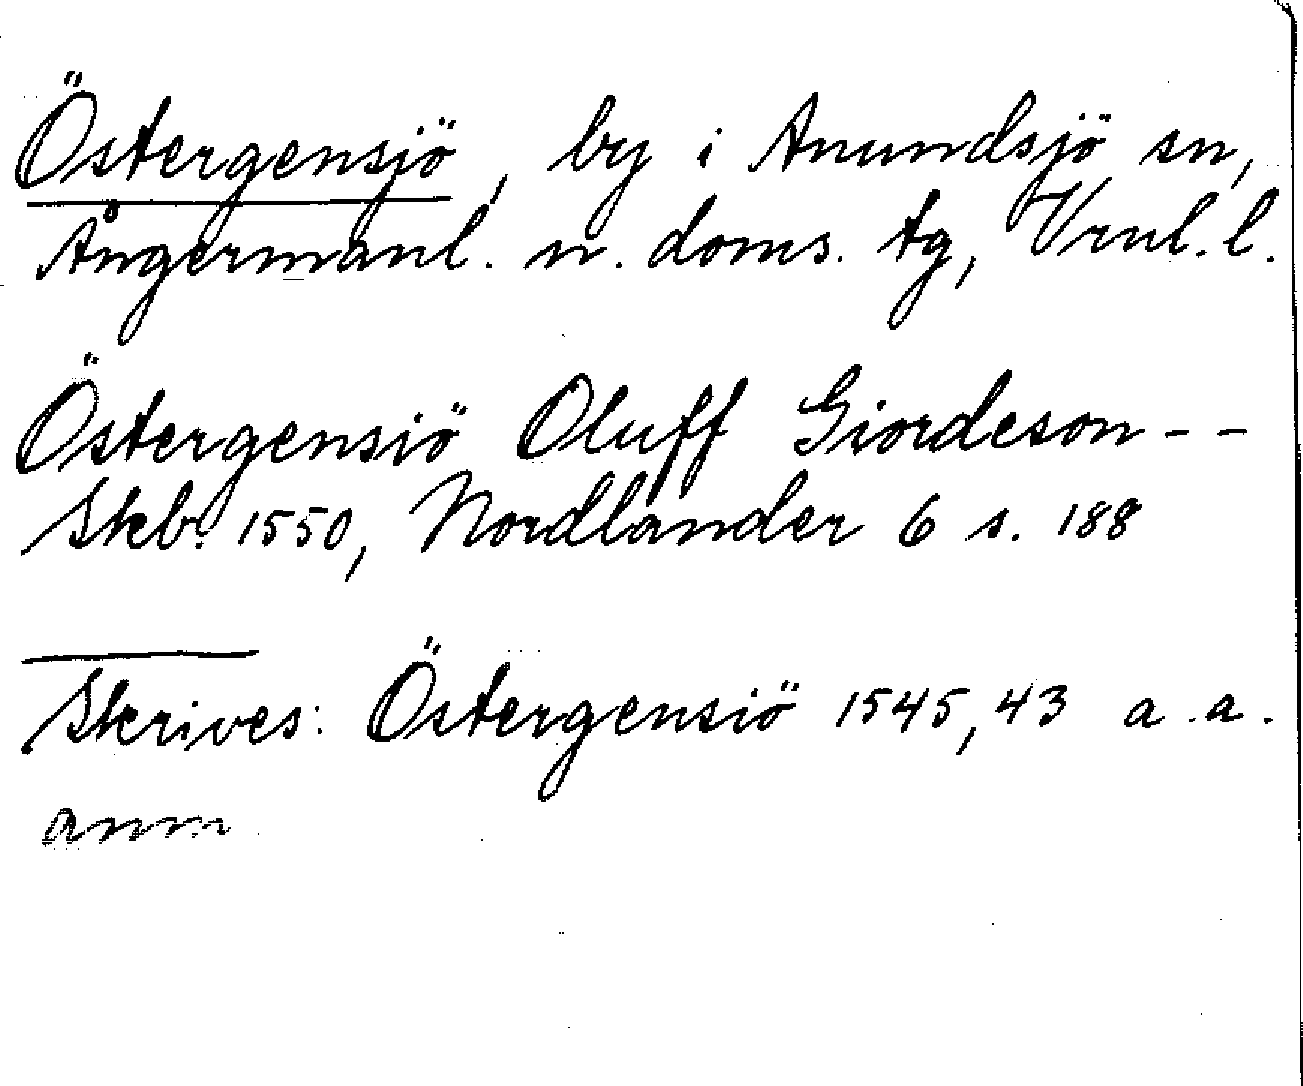 Östergensjö, by i Anundsjö sn,
Ångermanl. n. doms. tg, Vrnl. l.
Östergensiö Oluff Giordeson - -
Skb. 1550, Nordlander 6 s. 188
Skrives: Östergensiö 1545, 43 a. a.
anm